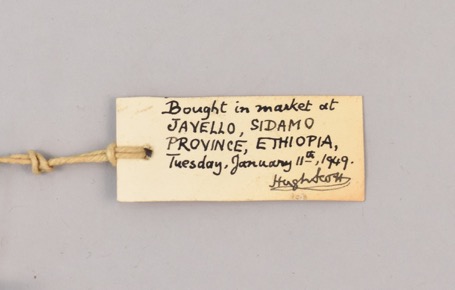 Bought in market at
JAVELLO, SIDAMO
PROVINCE, ETHIOPIA,
Tuesday, January 11th, 1949.
Hugh Scott